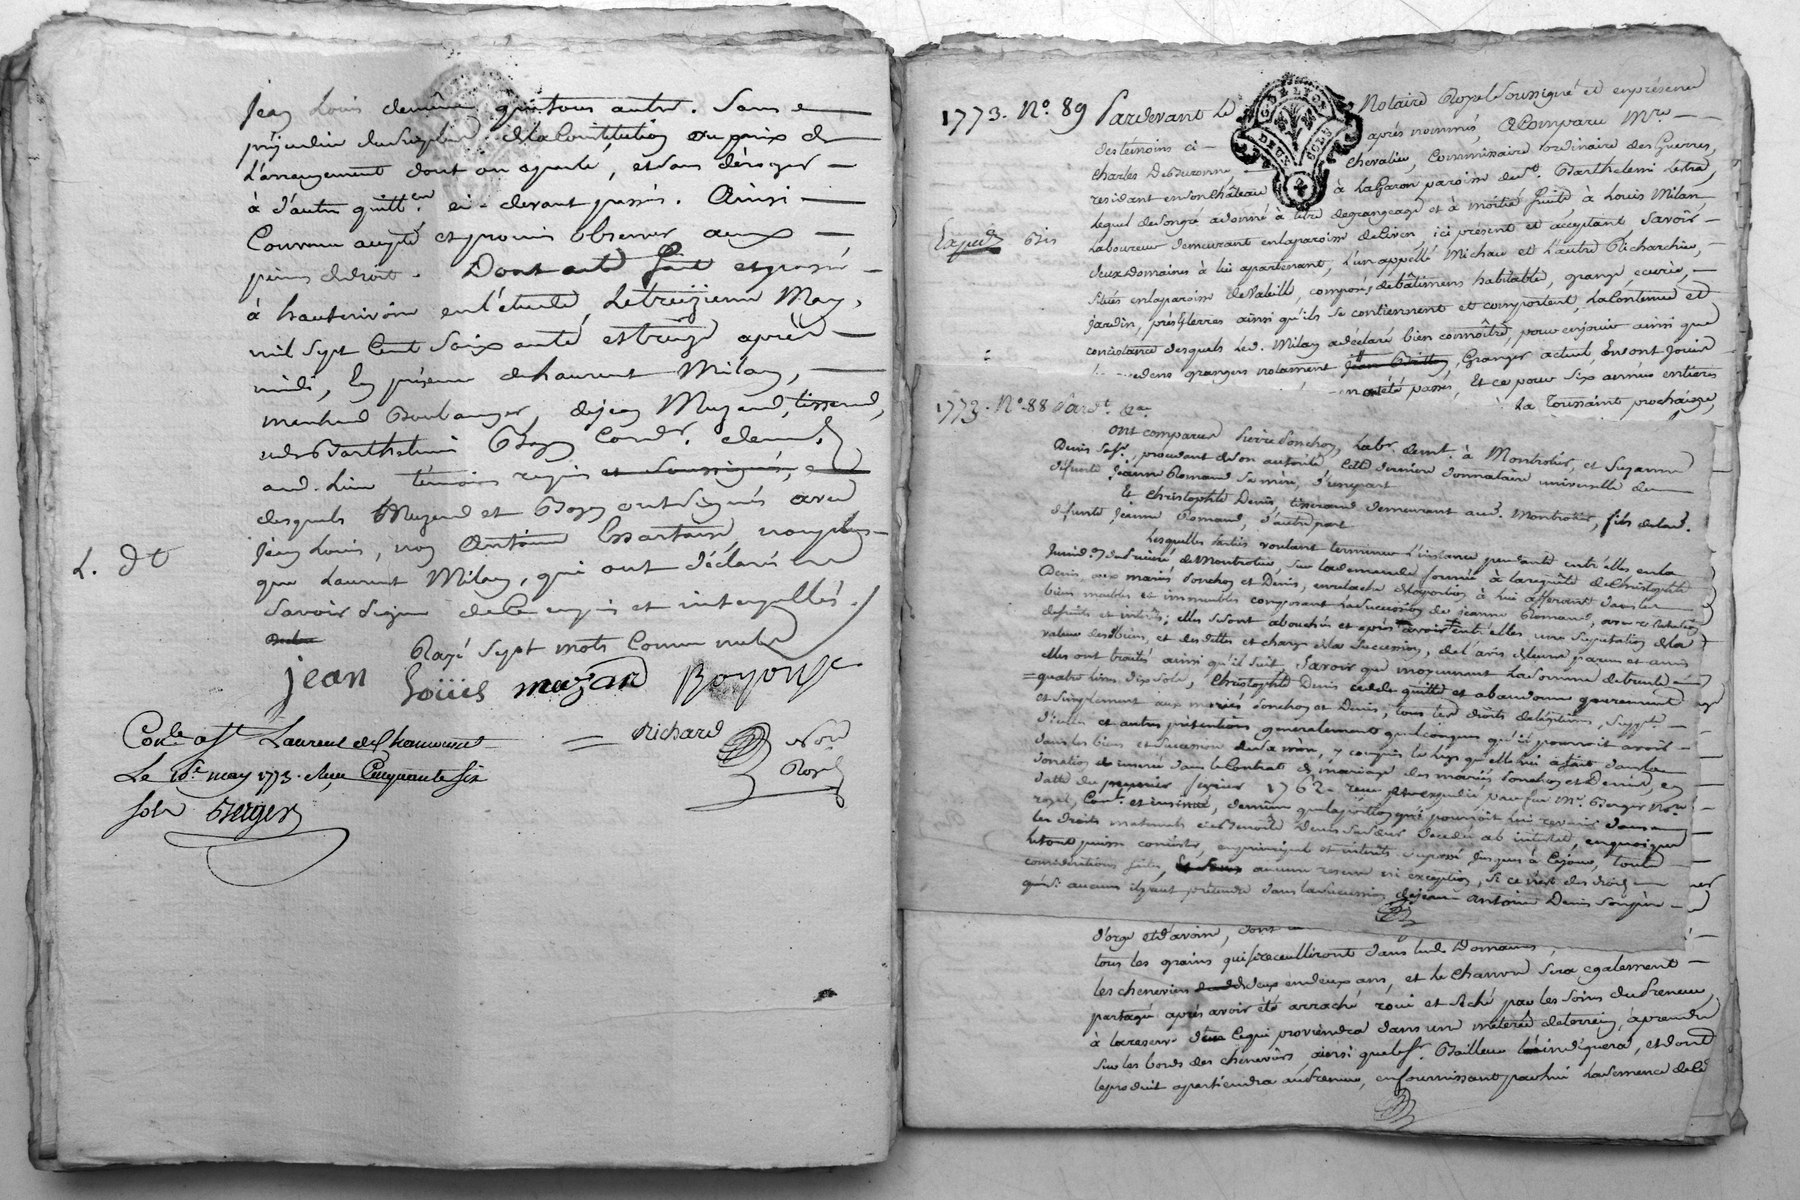 Jean Louis demeure quittous autre. Sans
préjudice du supplément de la Constitution au prix de
L'arrangement dont on a parlé, et sans déroger
à d'autre quitt.ce ci-devant passés. Ainsi
Convenu accepté et promis observer aux
peines de droit. Dont acte fait et passé
à hauterivoire en l'étude, Le treizieme May,
mil sept Cent Soixante et treize après
midi, En présence de Laurent Milan,
marchand Boulanger, de jean Mazard, tisserand,
et de Barthelemi Boyon Cord.r demeur.
aud. Lieu témoins requis et Soussignés,
desquels Mazard et Boyon ont signés avec
Jean Louis, non Antoine Essartaire, non plus
que Laurent Milan, qui ont déclaré ne
Savoir Signer de ce enquis et interpellés.
Rayé Sept mots Comme nuls
L. d t
jean Loüis mazard Boyon
Richard
Not.
Royal
Con.le a St. Laurent de Chamousset
Le 16.e may 1773. Reçu Cinquante Six
Sols Berger
1773. N.o 89 Pardevant Le Notaire Royal Soussigné et en présence
des témoins ci- après nommés A Comparu M.re
Charles DeBuronne, chevalier, Commissaire ordinaire des Guerres,
résidant en son Château à La Garon paroisse de S.t Barthelemi Lestra,
Lequel de son gré a donné à titre de grangeage et à moitié fruits à Louis Milan
Laboureur demeurant en la paroisse de ici présent et acceptant Savoir
Expéd.
deux Domaines à lui apartenant, L'un appellé Michau et L'autre Richarchin,
Situés en la paroisse de Valeille, composés de bâtimens habitable, grange, écurie,
jardin, prés et terres ainsi qu'ils se contiennent et comportent, La Contenue et
consistance desquels Led. Milan a déclaré bien connoître, pour en jouir ainsi que
grangers notamment Granger actuel, En ont joui
passés, Et ce pour Six années entieres
La Toussaint prochaine,
1773. N.o 88 Pard.t &a
ont comparus Pierre Ponchon, Lab.r dem.t à Montrotier, et Suzanne
Denis Sa f.e, procedant de son autorité, cette derniere donnataire universelle de
défunte Jeanne Romand Sa mère, d'une part
Et Christophle Denis, tisserand demeurant aud. Montrotier, fils de lad.
défunte Jeanne Romand, d'autre part
Lesquelles parties voulant terminer L'instance pendante entr'elles en la
Jurid.on du prieuré de Montrotier, Sur la demande formée à la requête de Christophle
Denis, aux mariés Ponchon et Denis, en relache de la portion à lui afferant dans les
biens meubles et immeubles composant La Succession de jeanne Romand, avec restitution
de fruits et intérêts; elles se sont abouchés et après avoir entr'elles, une Suputation de La
valeur des biens, et des dettes et charges de la Succession, de l'avis de leurs parens et amis
elles ont traités ainsi qu'il suit, Savoir que moyennant La Somme de trente
quatre livres dix Sols, Christophle Denis cede quitte et abandonne purement
et Simplement aux mariés Ponchon et Denis, tous les droits de légitime, Suppt.
d'icelle et autres prétentions generalement quelconques qu'il pourroit avoir
dans les biens et Succession de Sa mère, y compris le legs qu'elle lui a fait dans la
donation inserée dans le Contrat de mariage des mariés Ponchon et Denis, en
datte du premier fevrier 1762. reçu et expédié par feu M.e Berger Not.re
royal, Con.lé et insinué, de même que la portion qui pourroit lui revenir dans
les droits maternels de Denis Sa Sœur decedée ab intestat, en quoi que
le tout puisse consister, en principal et intérêts Suposé Jusques à Ce jour, toutes
considérations faites, aucune reserve ni exception, Si ce n'est des droits
qu'il peut prétendre dans la Succession de jean antoine Denis Son père
d'orge et d'avoine, dont
tous les grains qui se recueilliront dans les d. Domaines,
les chenevières deux en deux ans, et le chanvre Sera egalement
partagé après avoir été arraché roui et Séché par les Soins du Preneur,
à la reserve de Ce qui proviendra dans une méterée de terrein, à prendre
Sur les bords des chenevières ainsi que le S.r Bailleur l'indiquera, et dont
le produit apartiendra au Preneur, en fournissant par lui La Semence de la